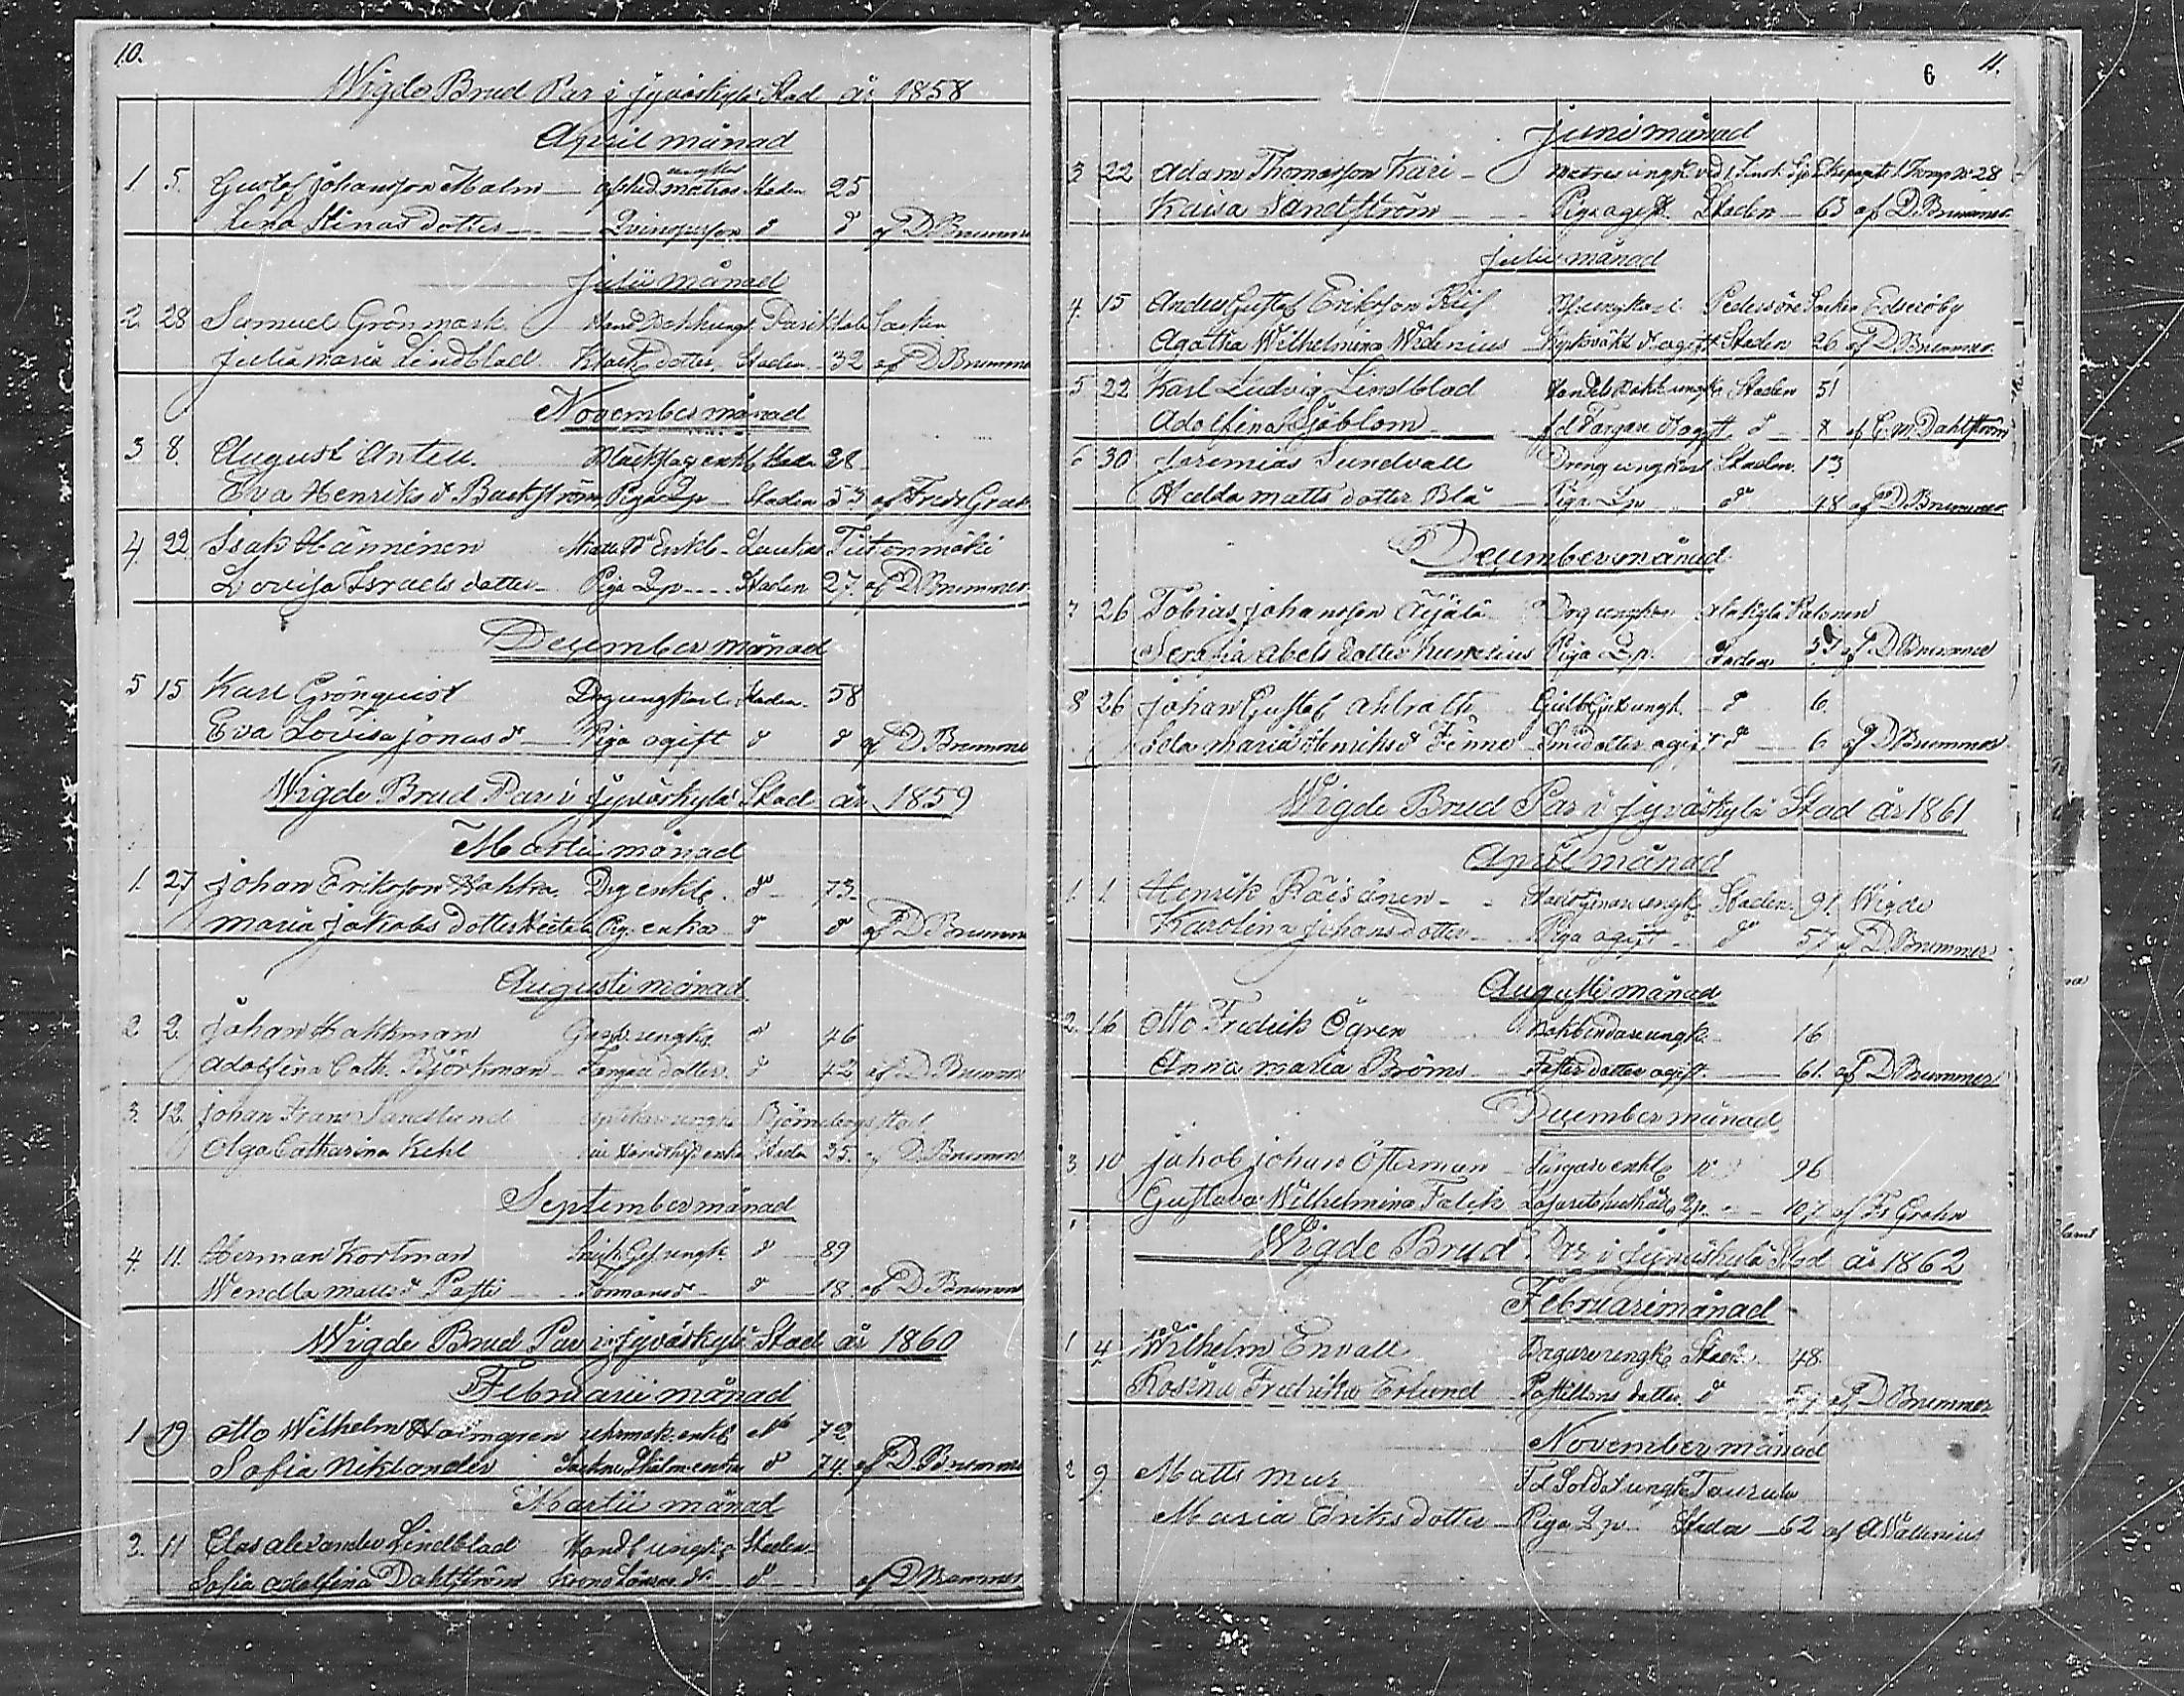 10.
Wigde Brud Par i Jyväskylä Stad År 1858
April månad
1 5. Gustaf Johansson Malm afsked. matros Staden 25
ungkar
Lena Stinas dotter Qvinsperson d d af D. Brummer
Julii månad
2. 28 Samuel Grönmark Hand Bokh ungk. Socken
Julia Maria Lindblad dotter Staden 32 af D Brummer
November månad
3 8. August Anteu. enkl Staden 28
Eva Henriks d Backström Piga Qp Staden 53 af Fredr Grah
4. 22 Isak Hänninen Enkl. Laukas Tiitonmäki
Lovisa Israels dotter Piga Qp Staden 27. af D Brummer
December månad
5 15 Karl Grönquist Drg ungkarl Staden. 58
Eva Lovisa Jonas d Piga ogift d d af D. Brummer
Wigde Brud Par i Jyväskylä Stad år 1859
Martii månad
1. 27 Johan Eriksson Hahka Drg enkl. do 73.
Maria Jakobs dotter Pig. enka d d af D Brummer
Augusti månad
2 2. Johan Kakkman ungk. d 46
Adolfina Cath. Björkman Färgare dotter. d 42 af D. Brummer
3. 12. Johan Frans Sandlund ungk. Björneborgs stad
Olga Catharina Kehl enka Staden 35. af D. Brummer
September månad
4. 11. Herman Kortman Gesl ungk. d 89
Wendla Matts d Pasti d 18. af D. Brummer
Wigde Brud Par i Jyväskylä Stad år 1860
Februarii månad
1 19 Otto Wilhelm Holmgren uhrmak. enkl 72.
Sofia Niklander enka d 74. af D. Brummer
Martii månad
2. 11 Clas Alexander Lindblad Handl ungk Staden
Sofia Adolfina Dahlström Krono Länsm. dr d af D Brummer
6 11.
Juni månad
3 22 Adam Thomasson Kari Matros ungk. vid 1 Finsk. Sjö Ekipaget 1 Komp No 28
Kaisa Sandström Piga ogift Staden 63 af D. Brummer
Julii månad
4. 15 Anders Gustaf Eriksson ungkarl Pedersöre Socken Edsevöby
Agatha Wilhelmina Widenius d ogift Staden 26 af D Brummer.
5 22 Karl Ludvig Lindblad Handels Bokh. ungk. Staden 51
Adolfina Sjöblom fd Färgare d ogift d 8 af C. W Dahlström
6 30 Jeremias Sundvall Dreng ungkarl Staden. 13
Hedda Matts dotter Blå Piga Qp do 48 af D Brummer
December månad
7 26 Tobias Johansson Äijälä Drg ungkar
Serafia Abels dotter Kumenius Piga Qp. Staden 37 af D Brummer
8 26 Johan Gustaf Ahlroth ungk. d 6.
Ida Maria Henriks d Finne Smed dotter ogift d 6 af D Brummer
Wigde Brud Par i Jyväskylä Stad år 1861
April månad
1. 1. Henrik Räisänen ungk Staden. 91. Wigde
Karolina Johansdotter Piga ogift do 57 af D. Brummer
Augusti månad
2. 16 Otto Fredrik Ögren Bokbindare ungk. 16
Anna Maria Broms dotter ogift. 61. af D Brummer
December månad
3 10 Jakob Johan Österman Färgare enkl 96
Gustava Wilhelmina Falck Qp. 107 af Fs Grahn
Wigde Brud Par i Jyväskylä Stad år 1862
Februari månad
1 4 Wilhelm Envall Bagare ungk Stad. 48.
Rosina Fredrika Erlund Postillons dotter d 57 af D Brummer
November månad
2 9 Matts Mur Fd Soldat ungk
Maria Eriks dotter Piga Qp Staden 62 af A Wallenius